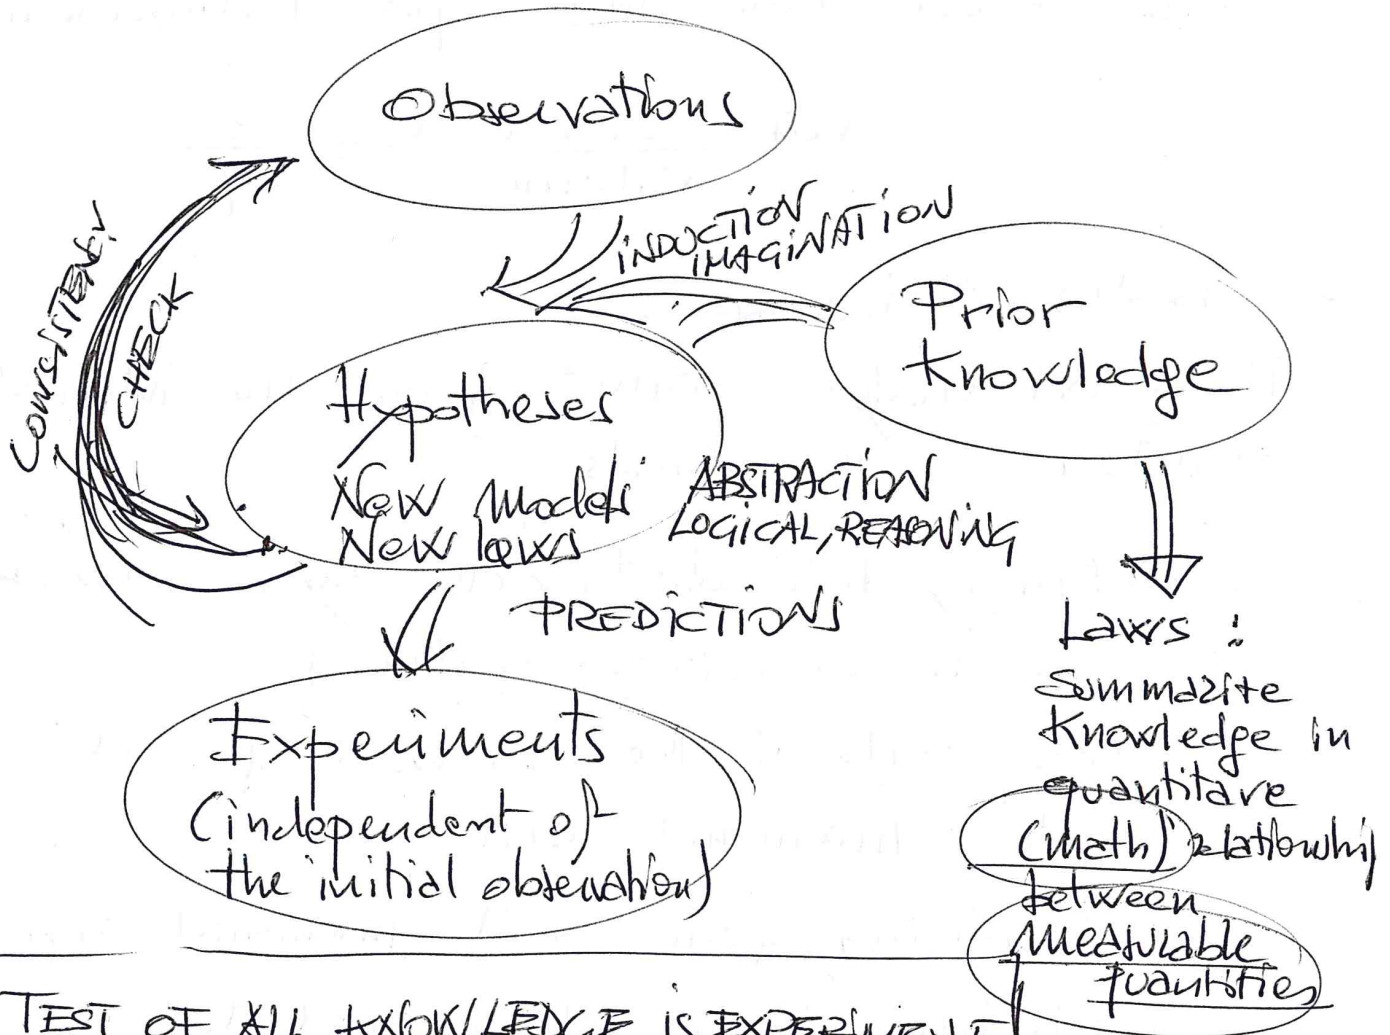 Observations
INDUCTION
IMAGINATION
CONSISTENCY
CHECK
Prior
Knowledge
Hypotheses
New Models
New laws
ABSTRACTION
LOGICAL, REASONING
PREDICTIONS
Experiments
(independent of
the initial observation)
Laws :
Summarite
Knowledge in
quantitave
(math) relationship
between
measurable
quantities
TEST OF ALL KNOWLEDGE IS EXPERIMENT